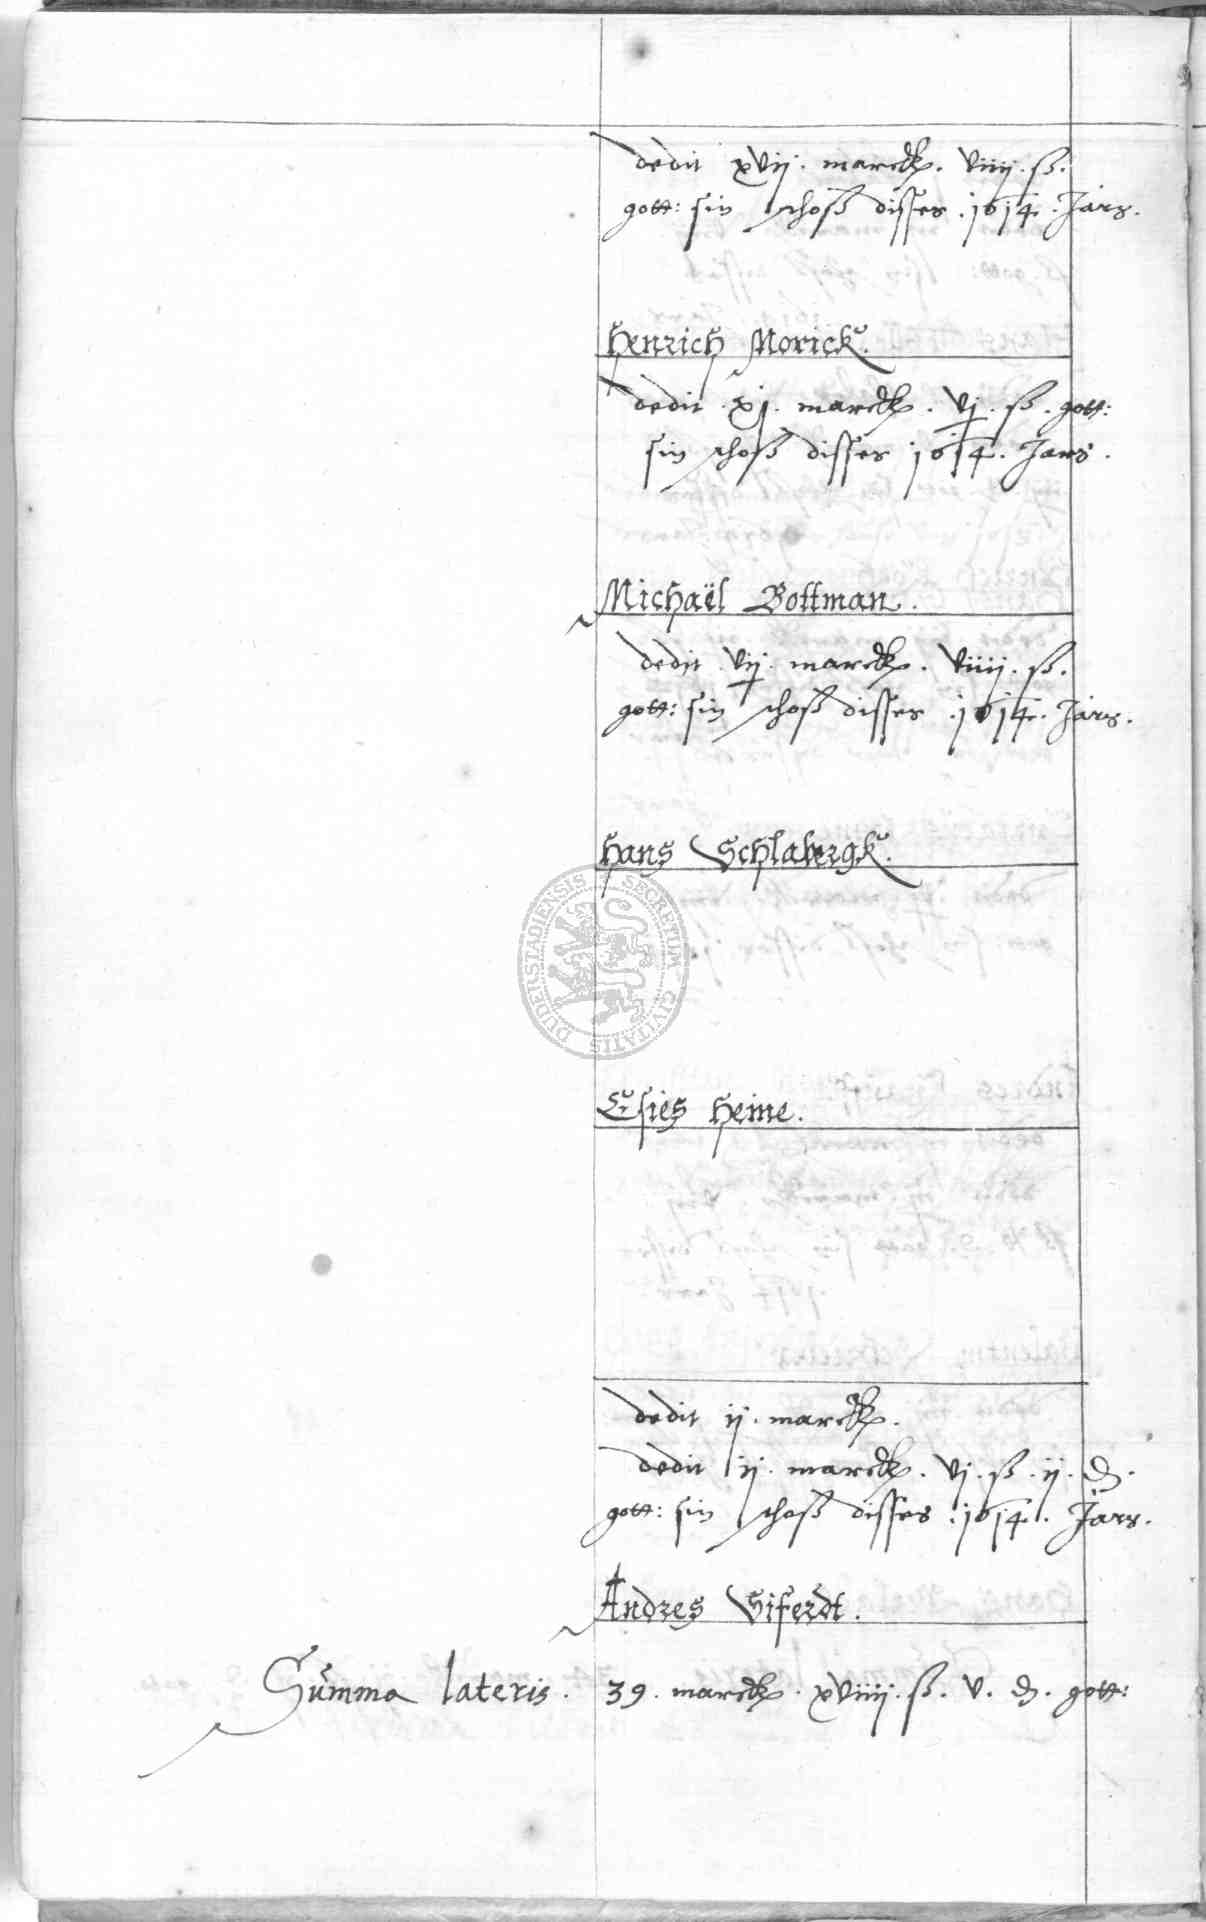 dedit xvij. marck. viiij. ß.
gott: sin schoß disses .1614. Jars.
Henrich Morick.
dedit xj. marck. vj. ß. gott:
sin schoß disses 1614. Jars.
Michaël Bottman.
dedit vij. marck. viiij. ß.
gott: sin schoß disses .1614. Jars.
Hans Schlabergk.
SECRETUM CIVITATIS DUDERSTADIENSIS
Esies Heine.
dedit ij. marck.
dedit ij. marck. vj. ß. ij. d.
gott: sin schoß disses .1614. Jars.
Andres Siferdt.
Summa lateris. 39. marck. xviiij. ß. v. d. gott: